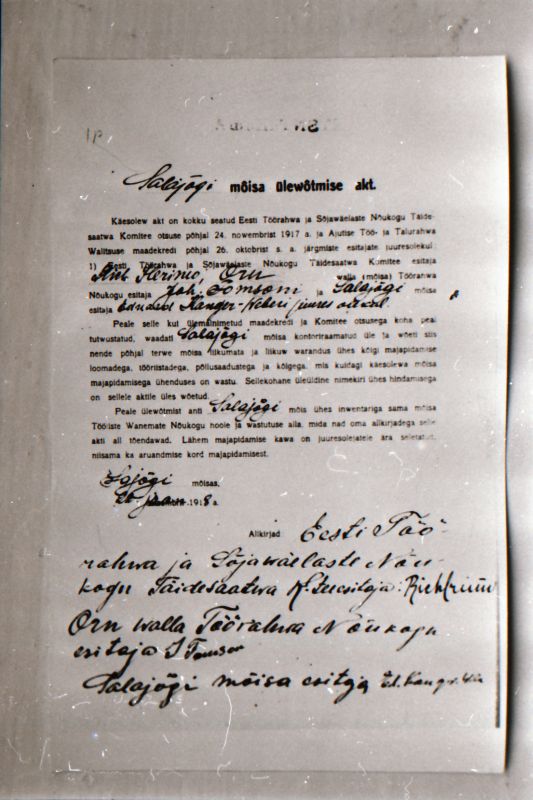 Salajõgi mõisa ülewõtmise akt.
Käesolew akt on kokku seatud Eesti Töörahwa ja Sõjawäelaste Nõukogu Täide-
saatwa Komitee otsuse põhjal 24. nowembrist 1917 a. ja Ajutise Töö- ja Talurahwa
Walitsuse maadekredi põhjal 26. oktobrist s. a. järgmiste esitajate juuresolekul:
1) Eesti Töörahwa ja Sõjawäelaste Nõukogu Täidesaatwa Komitee esitaja
Orn walla (mõisa) Töörahwa
Nõukogu esitaja Joh. Tomsoni ja Salajõgi mõisa
esitaja Eduard juures olekul.
Peale selle kui ülemalnimetud maadekredi ja Komitee otsusega koha peal
tutwustatud, waadati Salajõgi mõisa kontoriraamatud üle ja wõeti siis
nende põhjal terwe mõisa liikumata ja liikuw warandus ühes kõigi majapidamise
loomadega, tööriistadega, põllusaadustega ja kõigega, mis kuidagi käesolewa mõisa
majapidamisega ühenduses on wastu. Seilekohane üleüldine nimekiri ühes hindamisega
on sellele aktile üles wõetud.
Peale ülewõtmist anti Salajõgi mõis ühes inwentariga sama mõisa
Tööliste Wanemate Nõukogu hoole ja wastutuse alla, mida nad oma allkirjadega selle
akti all tõendawad. Lähem majapidamise kawa on juuresolejatele ära seletatud,
niisama ka aruandmise kord majapidamisest.
Sajõgi mõisas,
1918 a.
Allkirjad: Eesti Töö-
rahwa ja Sõjawäelaste Nõu-
kogu Täidesaatwa
Orn walla Töörahwa Nõukogu
esitaja J Tomson
Salajõgi mõisa esitaja